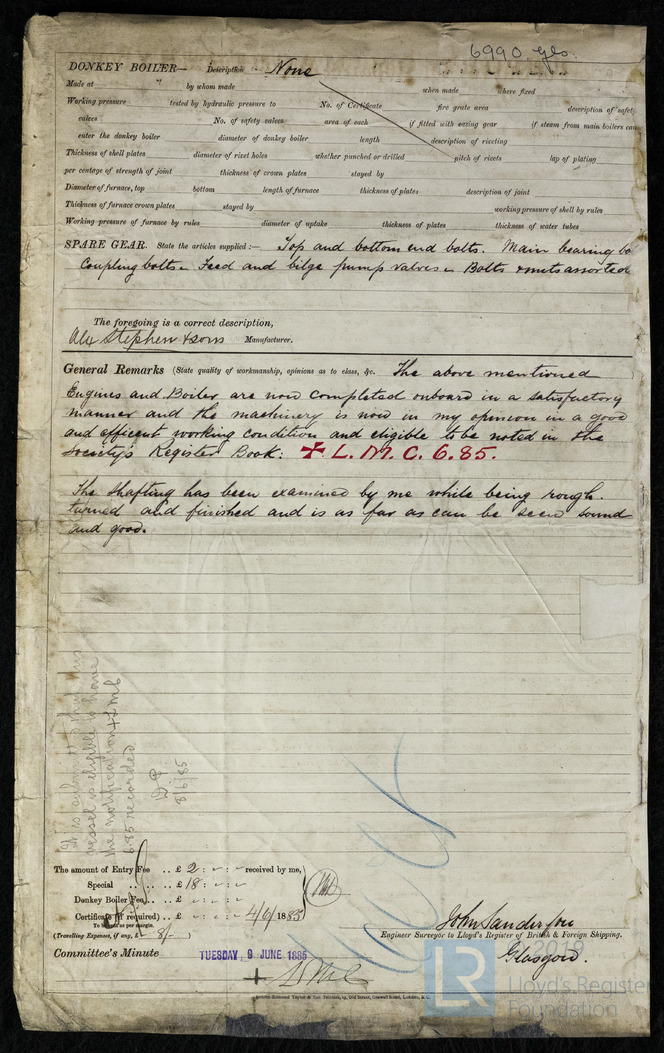 6990 gls.
DONKEY BOILER— Description None
Made at " by whom made when made where fixed
Working pressure tested by hydraulic pressure to No. of Certificate fire grate area description of safety
valves No. of safety valves area of each if fitted with easing gear if steam from main boilers can
enter the donkey boiler diameter of donkey boiler length description of riveting
Thickness of shell plates diameter of rivet holes whether punched or drilled pitch of rivets lap of plating
per centage of strength of joint thickness of crown plates stayed by
Diameter of furnace, top bottom length of furnace thickness of plates description of joint
Thickness of furnace crown plates stayed by working pressure of shell by rules
Working pressure of furnace by rules diameter of uptake thickness of plates thickness of water tubes
SPARE GEAR. State the articles supplied:— Top and bottom end bolts. Main bearing bo
Coupling bolts. Feed and bilge pump valves. Bolts & nuts assorted
The foregoing is a correct description,
Alex Stephen & sons Manufacturer.
General Remarks (State quality of workmanship, opinions as to class, &c. The above mentioned
Engines and Boiler are now completed onboard in a satisfactory
manner and the machinery is now in my opinion in a good
and efficent working condition and eligible to be noted in the
Society's Register Book: ✠ L. M. C. 6.85.
The shafting has been examined by me while being rough.
turned and finished and is as far as can be seen sound
and good.
It is submitted that this
vessel is eligible to have
the notification + LMC
6.85 recorded
8/6/85
The amount of Entry Fee .. £ 2 : - : - received by me,
Special .. .. £ 18 : - : -
Donkey Boiler Fee .. .. £ - : - : -
Certificate (if required) .. £ - : - : - 4/6/1885
To be sent as per margin.
(Travelling Expenses, if any, £ - 8/- )
John Sanderson
Engineer Surveyor to Lloyd's Register of British & Foreign Shipping.
Glasgow.
Committee's Minute TUESDAY 9 JUNE 1885
+ LMC
2019
LR Lloyd's Register
Foundation